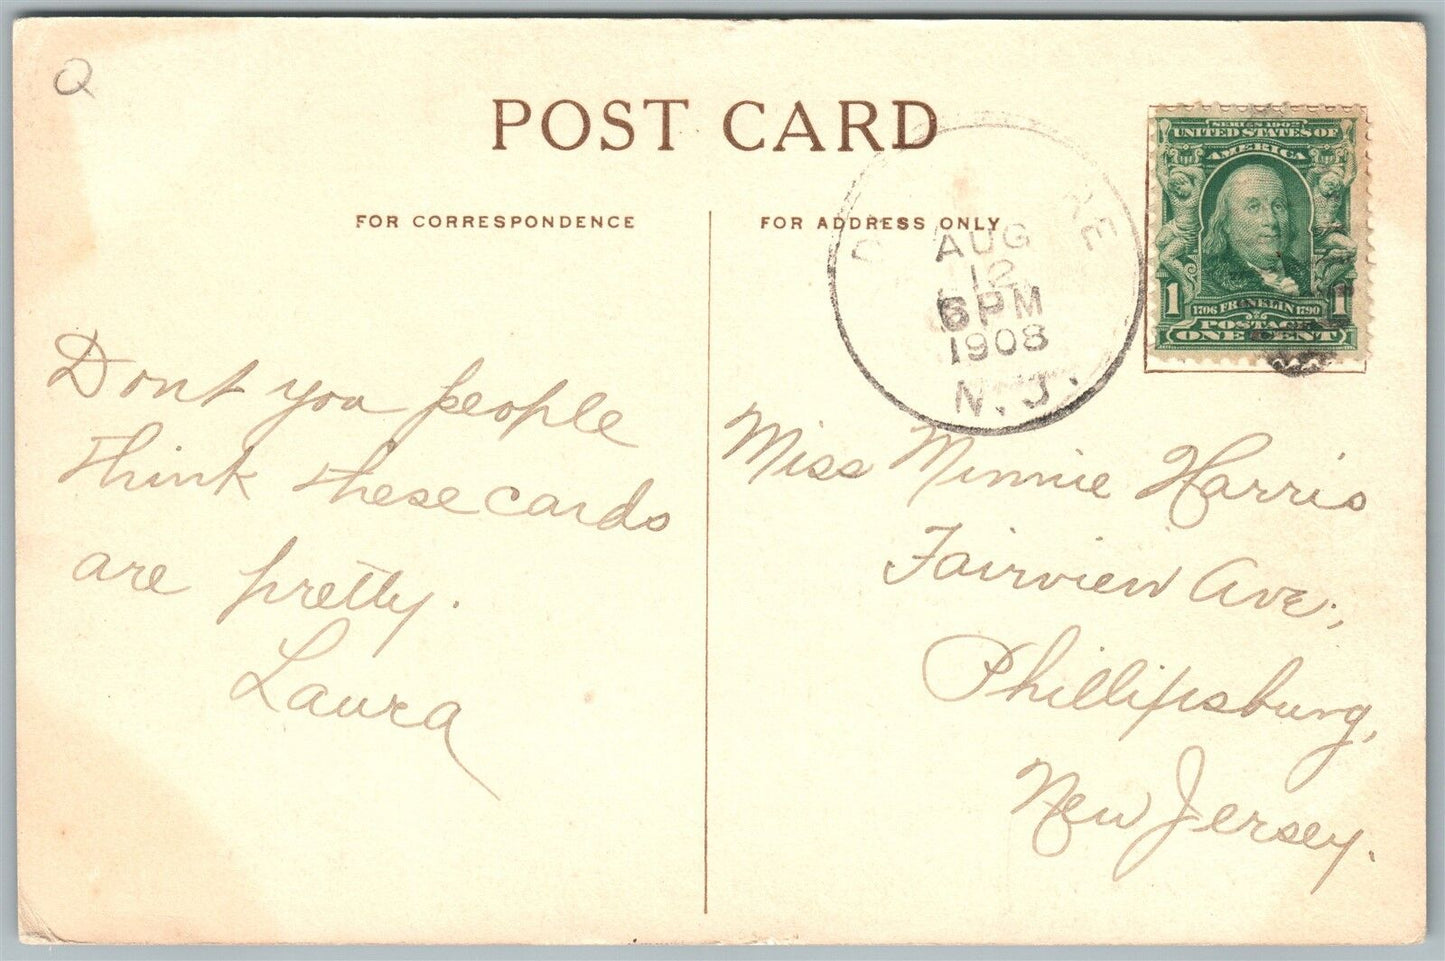 Q
POST CARD
FOR CORRESPONDENCE
FOR ADDRESS ONLY
SERIES 1902
UNITED STATES OF
AMERICA
1 1706 FRANKLIN 1790 1
POSTAGE
ONE CENT
AUG
12
6 PM
1908
N. J.
Dont you people
think these cards
are pretty.
Laura
Miss Minnie Harris
Fairview Ave.,
Phillipsburg,
New Jersey.